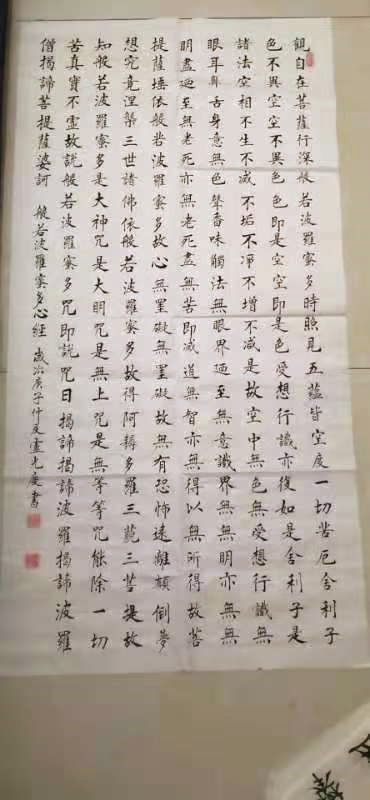 觀自在菩薩行深般若波羅蜜多時照見五蘊皆空度一切苦厄舍利子
色不異空空不異色色即是空空即是色受想行識亦復如是舍利子是
諸法空相不生不滅不垢不淨不增不減是故空中無色無受想行識無
眼耳鼻舌身意無色聲香味觸法無眼界迺至無意識界無無明亦無無
明盡迺至無老死亦無老死盡無苦即滅道無智亦無得以無所得故菩
提薩埵依般若波羅蜜多故心無罣礙無罣礙故無有恐怖遠離顛倒夢
想究竟涅槃三世諸佛依般若波羅蜜多故得阿耨多羅三藐三菩提故
知般若波羅蜜多是大神咒是大明咒是無上咒是無等等咒能除一切
苦真實不虛故說般若波羅蜜多咒即說咒曰揭諦揭諦波羅揭諦波羅
僧揭諦菩提薩婆訶 般若波羅蜜多心經 歲次庚子仲夏 書